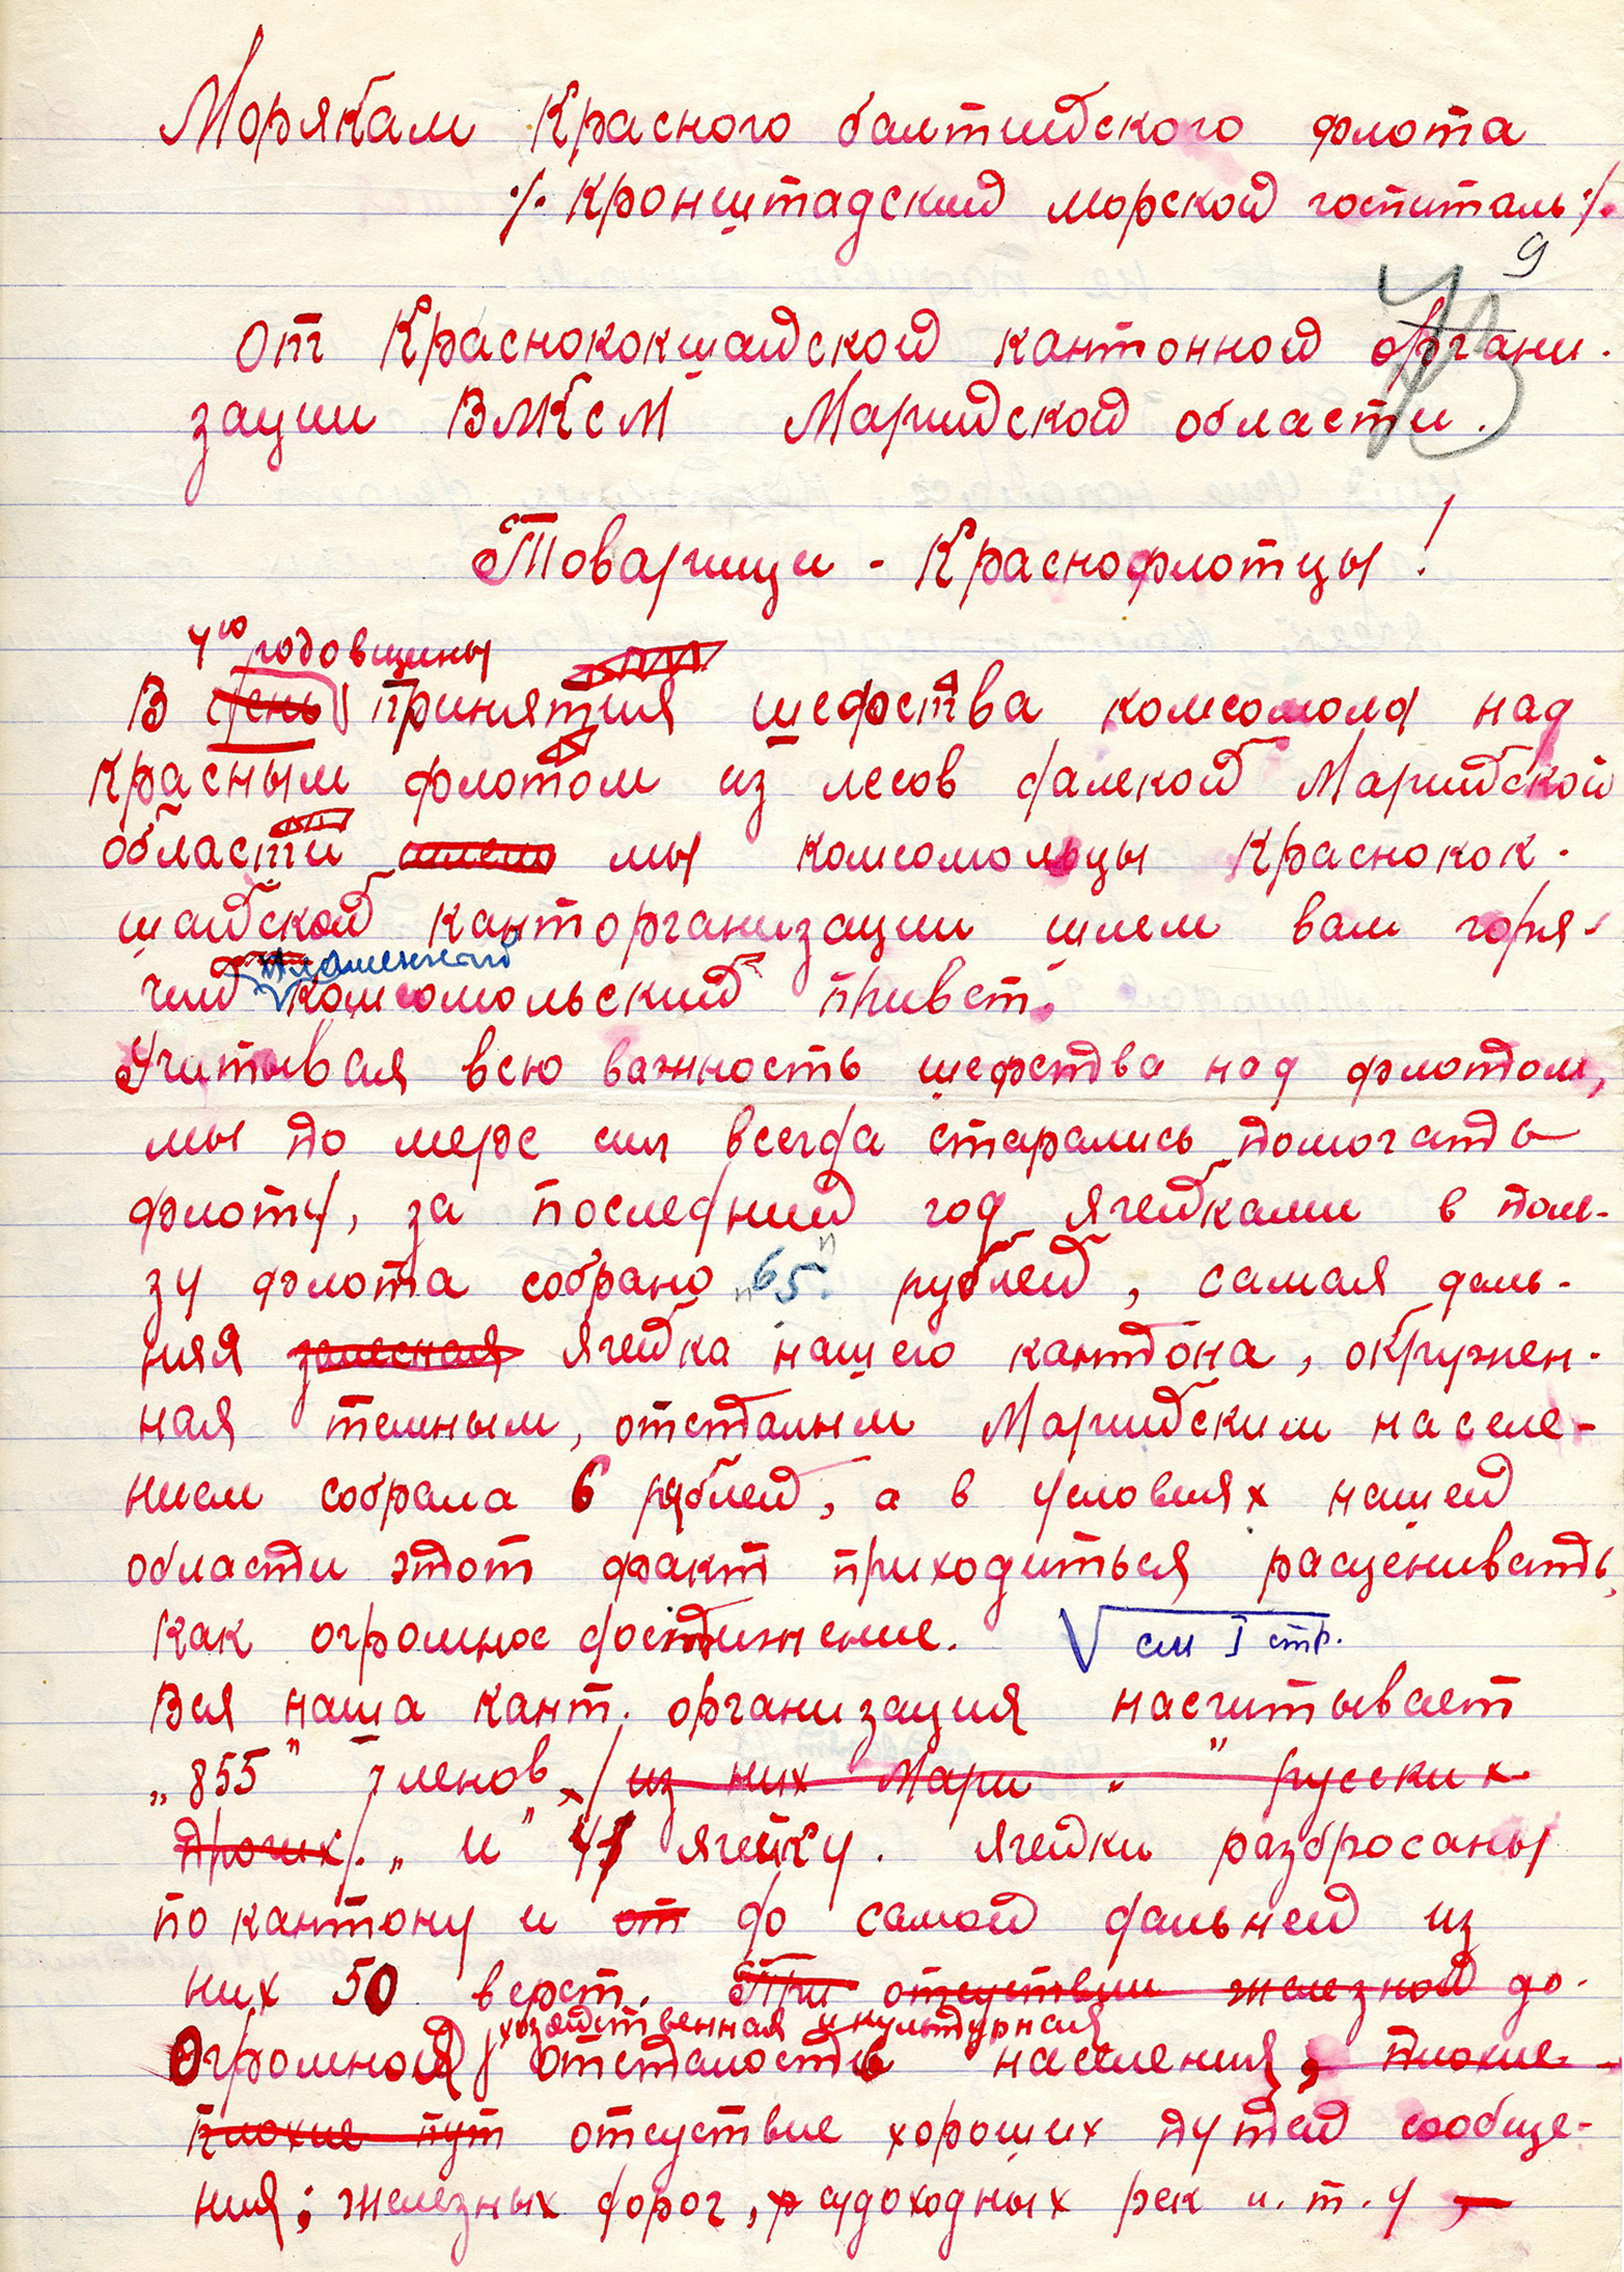 Морякам Красного балтийского флота
·/. Кронштадский морской госпиталь ·/.
9
От Краснококшайской кантонной органи-
зации ВЛКСМ Марийской области.
Товарищи - Краснофлотцы!
4ю годовщины
В день принятия шефства комсомола над
Красным флотом из лесов далекой Марийской
области шлем мы комсомольцы Краснокок-
шайской канторганизации шлем вам горя-
пламенный
чий комсомольский привет.
Учитывая всю важность шефства над флотом,
мы по мере сил всегда старались помогать
флоту, за последний год ячейками в поль-
зу флота собрано "65" рублей, самая даль-
няя залесная ячейка нашего кантона, окружен-
ная темным, отсталым Марийским населе-
нием собрала 6 рублей, а в условиях нашей
области этот факт приходиться расценивать
как огромное достижение. √ см I стр.
Вся наша кант. организация насчитывает
„855" членов, /из них Мари „ " русских
прочих/. „ и " 41 ячейку. ячейки разбросаны
по кантону и от до самой дальней из
них 50 верст. При отсуствии железной до-
хозяйственная и культурная
Огромная отсталость населения, плохие
плохие пут отсуствие хороших путей сообще-
ния; железных дорог, судоходных рек и.т.д